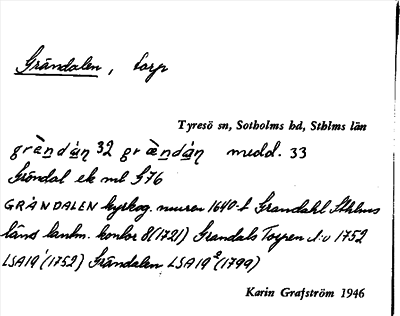 Grändalen, torp
Tyresö sn, Sotholms hd, Sthlms län
grèndán 32 grændán medd. 33
Gröndal ek ml G76
GRÄNDALEN kyrkog. muren 1640-t Grandahl Sthlms
läns lantm. kontor 8(1721) Grandals Torpen 1752
LSA19 (1752) Grändalen LSA19² (1799)
Karin Grafström 1946